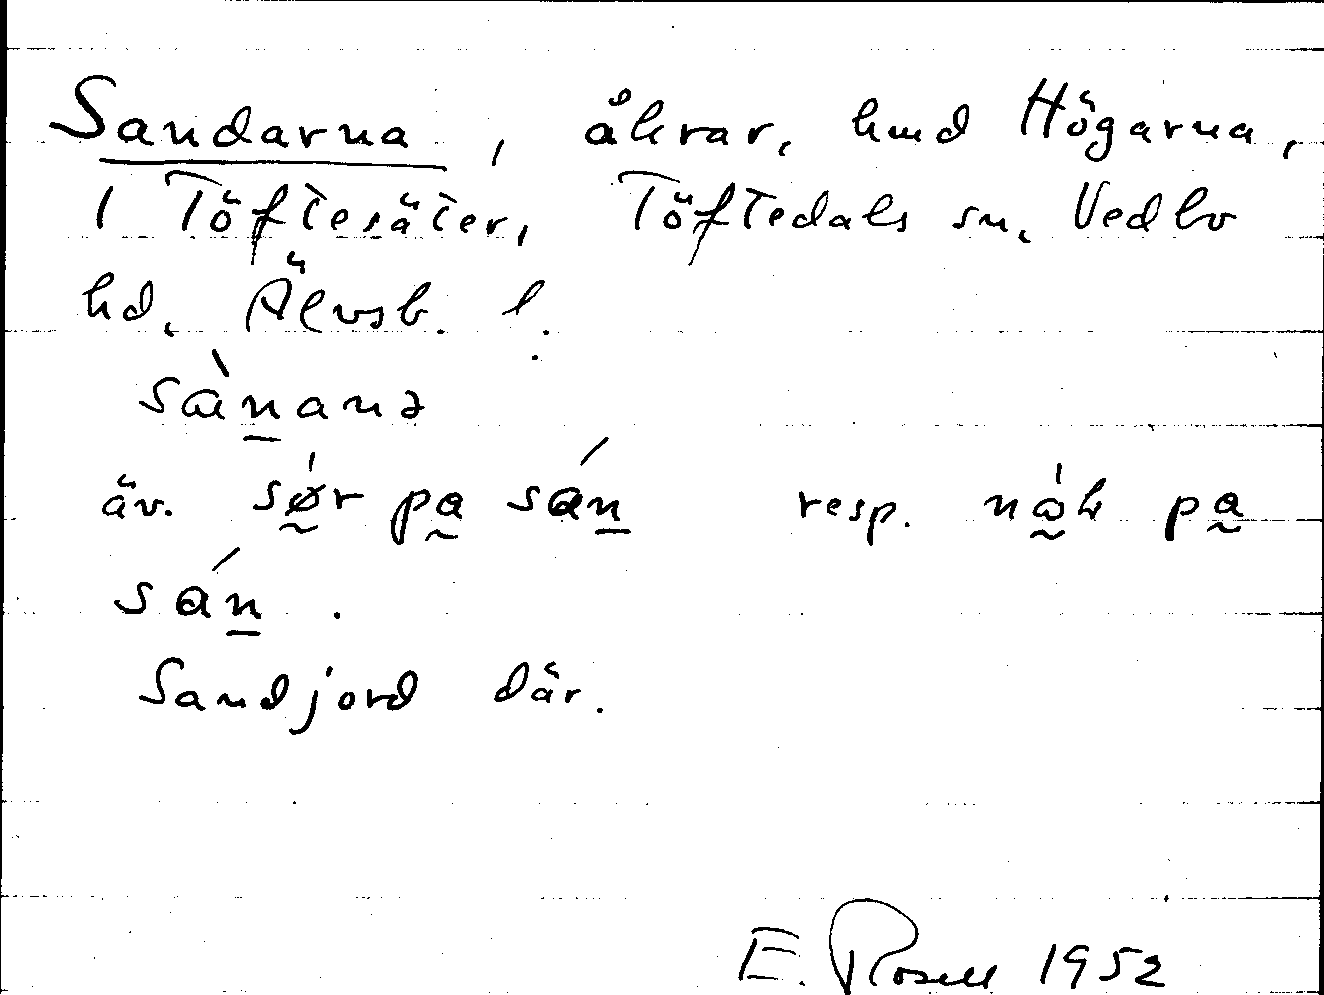 Sandarna, åkrar, hmd Högarna,
1 Töftesäter, Töftedals sn, Vedbo
hd, Älvsb. l.
sànanə
äv. sǿ̰r pa̰ sán̲ resp. nɷ̰́ɹ pa̰
sán̲.
Sandjord där.
E. Rosell 1952